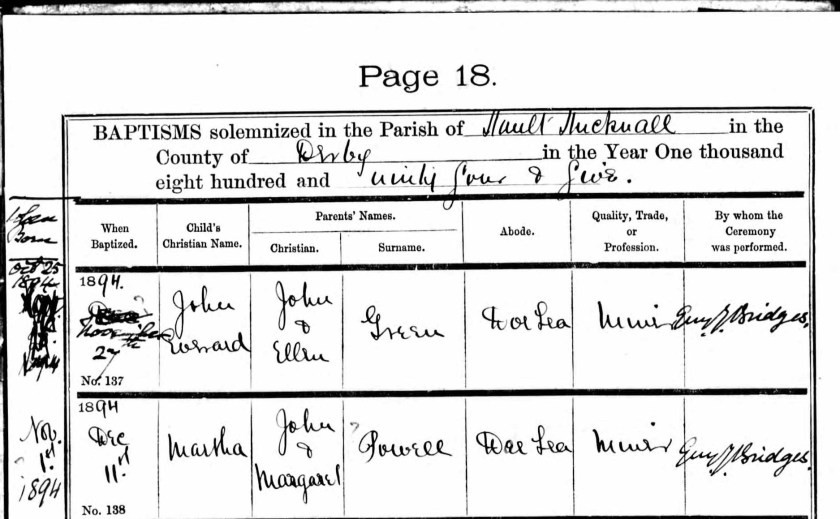 Page 18.
BAPTISMS solemnized in the Parish of Hault Hucknall in the
County of Derby in the Year One thousand
eight hundred and ninety four & five.
When Born
When Baptized.
Child's Christian Name.
Parents' Names.
Christian.
Surname.
Abode.
Quality, Trade, or Profession.
By whom the Ceremony was performed.
Oct 25
1894
1894.
November
27th
No. 137
John
Everard
John
&
Ellen
Green
Doe Lea
Miner
Guy J Bridges.
Nov.
1st
1894
1894
Dec
11th
No. 138
Martha
John
&
Margaret
Powell
Doe Lea
Miner
Guy J Bridges.